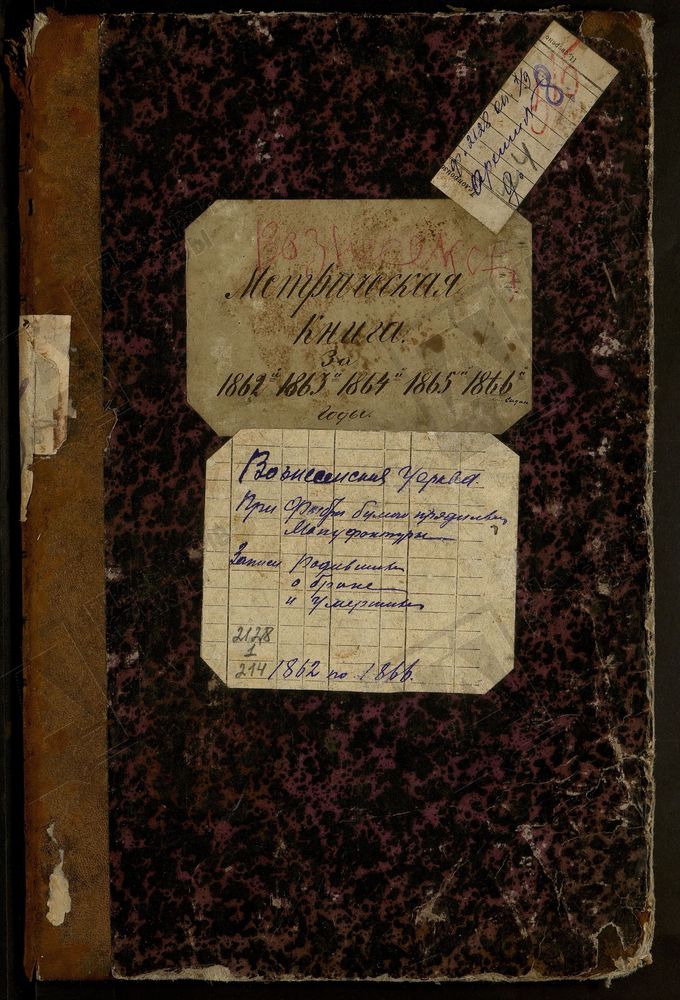 Вознесенск
Метрическая
Книга.
За
1862й 1863й 1864й 1865й 1866й
годы.
Вознесенская Церква.
При бумаго прядильн
Мануфактуры
Записи родившихся
о браке
и умерших
2128
1
214 1862 по 1866.